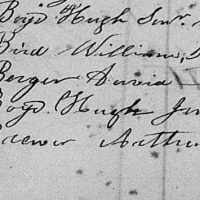 Boyd Hugh Senr.
Bird William,
Berger David
Boyd. Hugh Jun
rewer Arthu